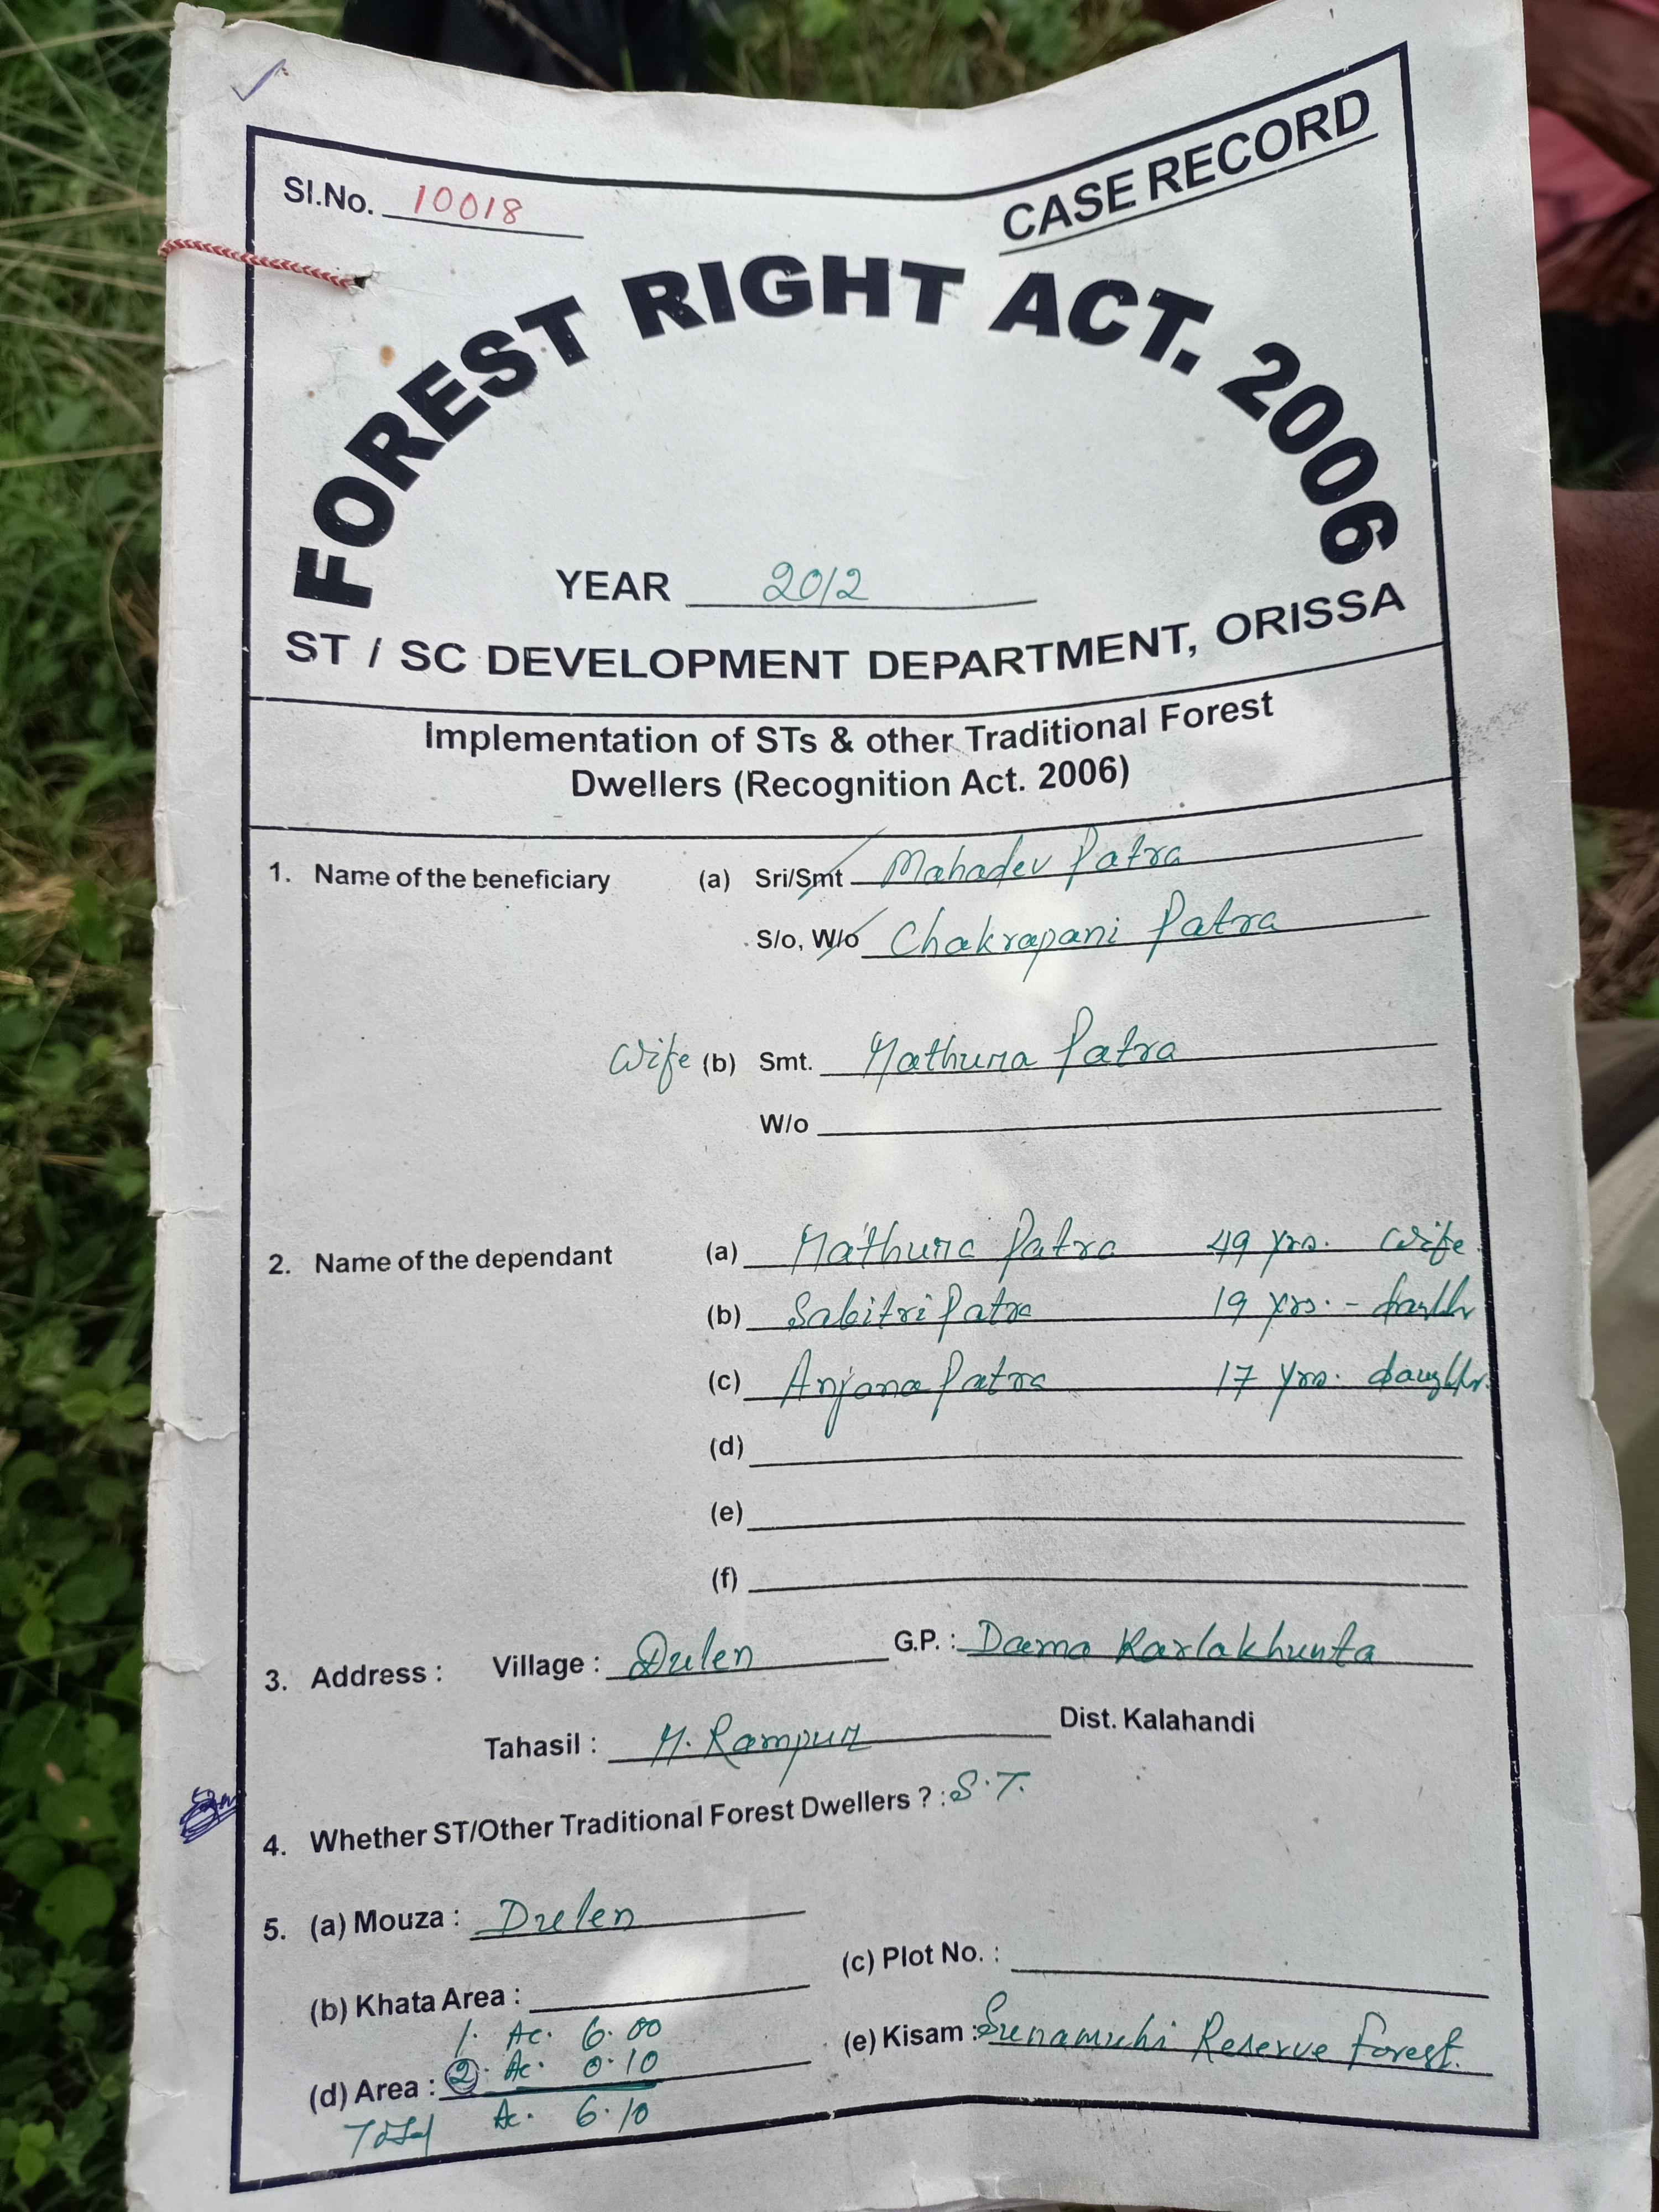 Sl.No. 10018
CASE RECORD
FOREST RIGHT ACT. 2006
YEAR 2012
ST / SC DEVELOPMENT DEPARTMENT, ORISSA
Implementation of STs & other Traditional Forest
Dwellers (Recognition Act. 2006)
1. Name of the beneficiary (a) Sri/Smt Mahadev Patra
S/o, W/o Chakrapani Patra
Wife (b) Smt. Mathura Patra
W/o
2. Name of the dependant (a) Mathura Patra 49 yrs. Wife
(b) Sabitri Patra 19 yrs. - daughter
(c) Anjana Patra 17 yrs. daughter
(d)
(e)
(f)
3. Address : Village : Dulen G.P. : Dama Karlakhunta
Tahasil : M. Rampur Dist. Kalahandi
4. Whether ST/Other Traditional Forest Dwellers ? : S.T.
5. (a) Mouza : Dulen
(b) Khata Area : (c) Plot No. :
1. Ac. 6.00
(d) Area : 2. Ac. 0.10 (e) Kisam : Sunamuhi Reserve Forest.
Total Ac. 6.10